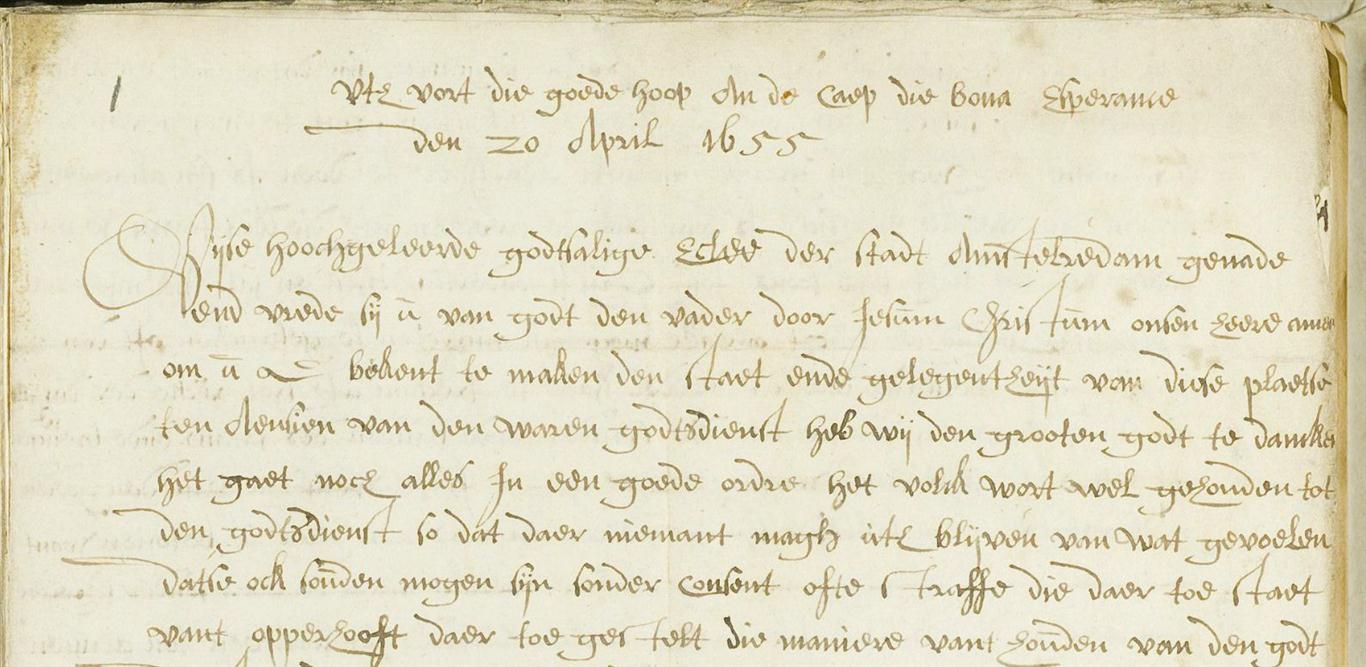 1
Vth vort die goede hoop An de Caep die bona Esperance
den 20 April 1655
Wijse hoochgeleerde godtsalige der stadt Amstelredam genade
end vrede sij u van godt den vader door Jesum Christum onsen heere amen
om u E bekent te maken den staet ende gelegentheijt van diese plaetse
ten Aensien van den waren godtsdienst heb wij den grooten godt te dancken
het gaet noch alles In een goede ordre het volck wort wel gehouden tot
den godtsdienst so dat daer niemant magh uth blijven van wat gevoelen
datse ock souden mogen sijn sonder Consent ofte straffe die daer toe staet
vant opperhooft daer toe gestelt die maniere vant houden van den godt